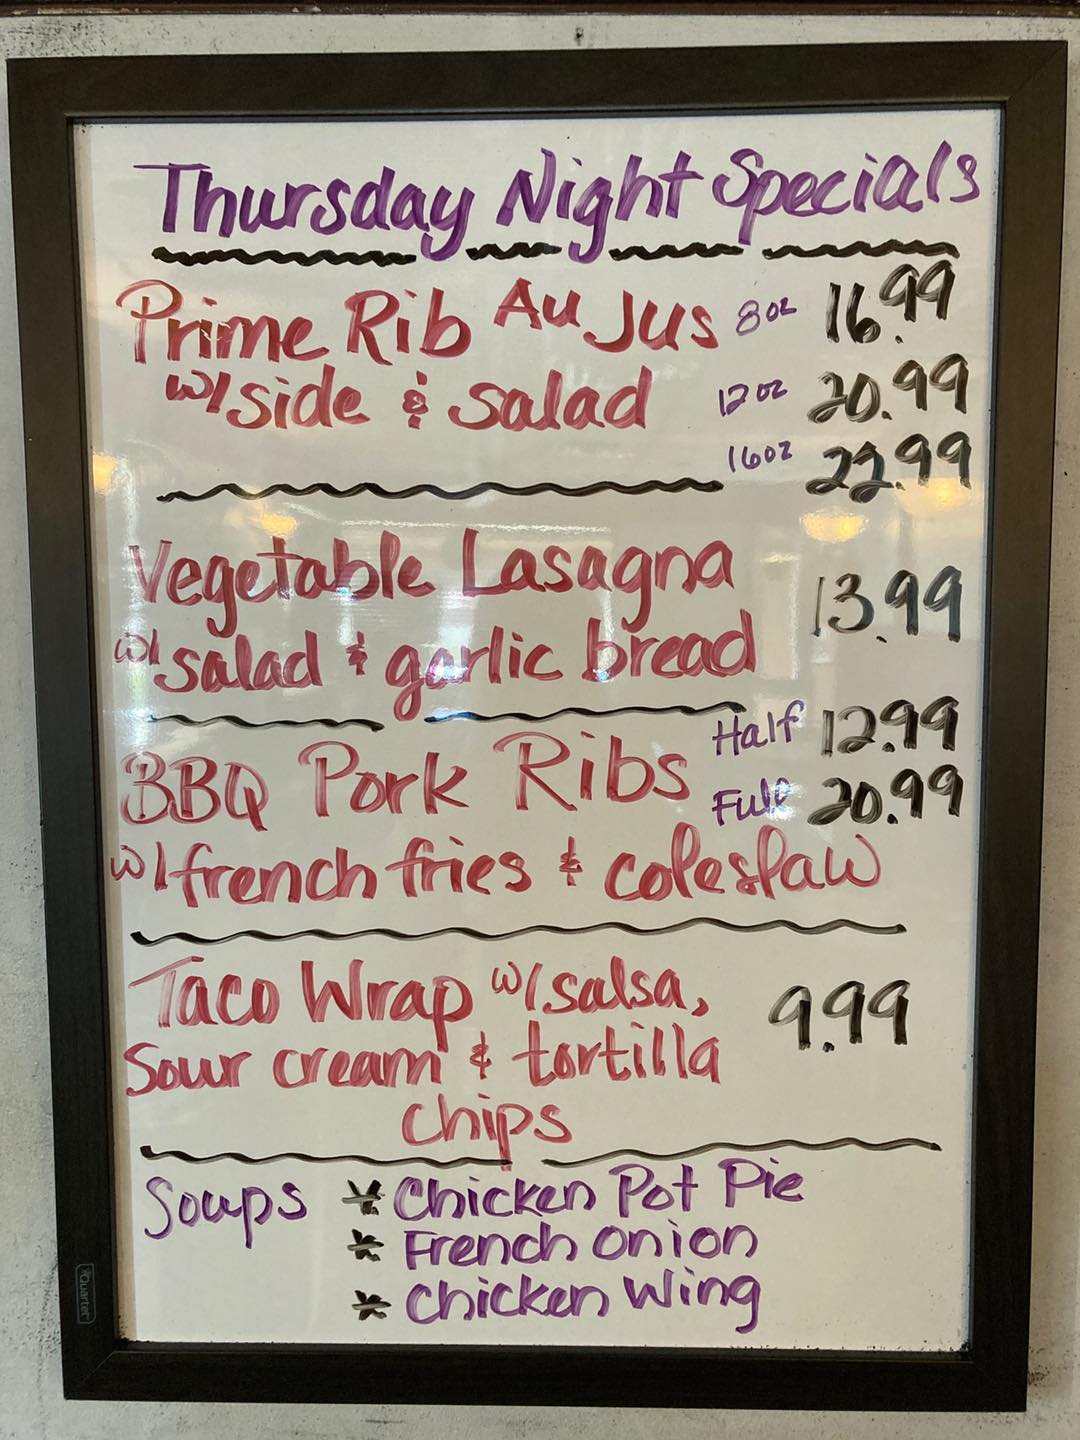 Thursday Night Specials
Prime Rib Au Jus 8oz 16.99
w/side & salad 12oz 20.99
16oz 22.99
Vegetable Lasagna 13.99
w/salad & garlic bread
BBQ Pork Ribs Half 12.99
Full 20.99
w/french fries & coleslaw
Taco Wrap w/salsa, 9.99
Sour cream & tortilla
chips
Soups * Chicken Pot Pie
* French Onion
* Chicken Wing
Quartet